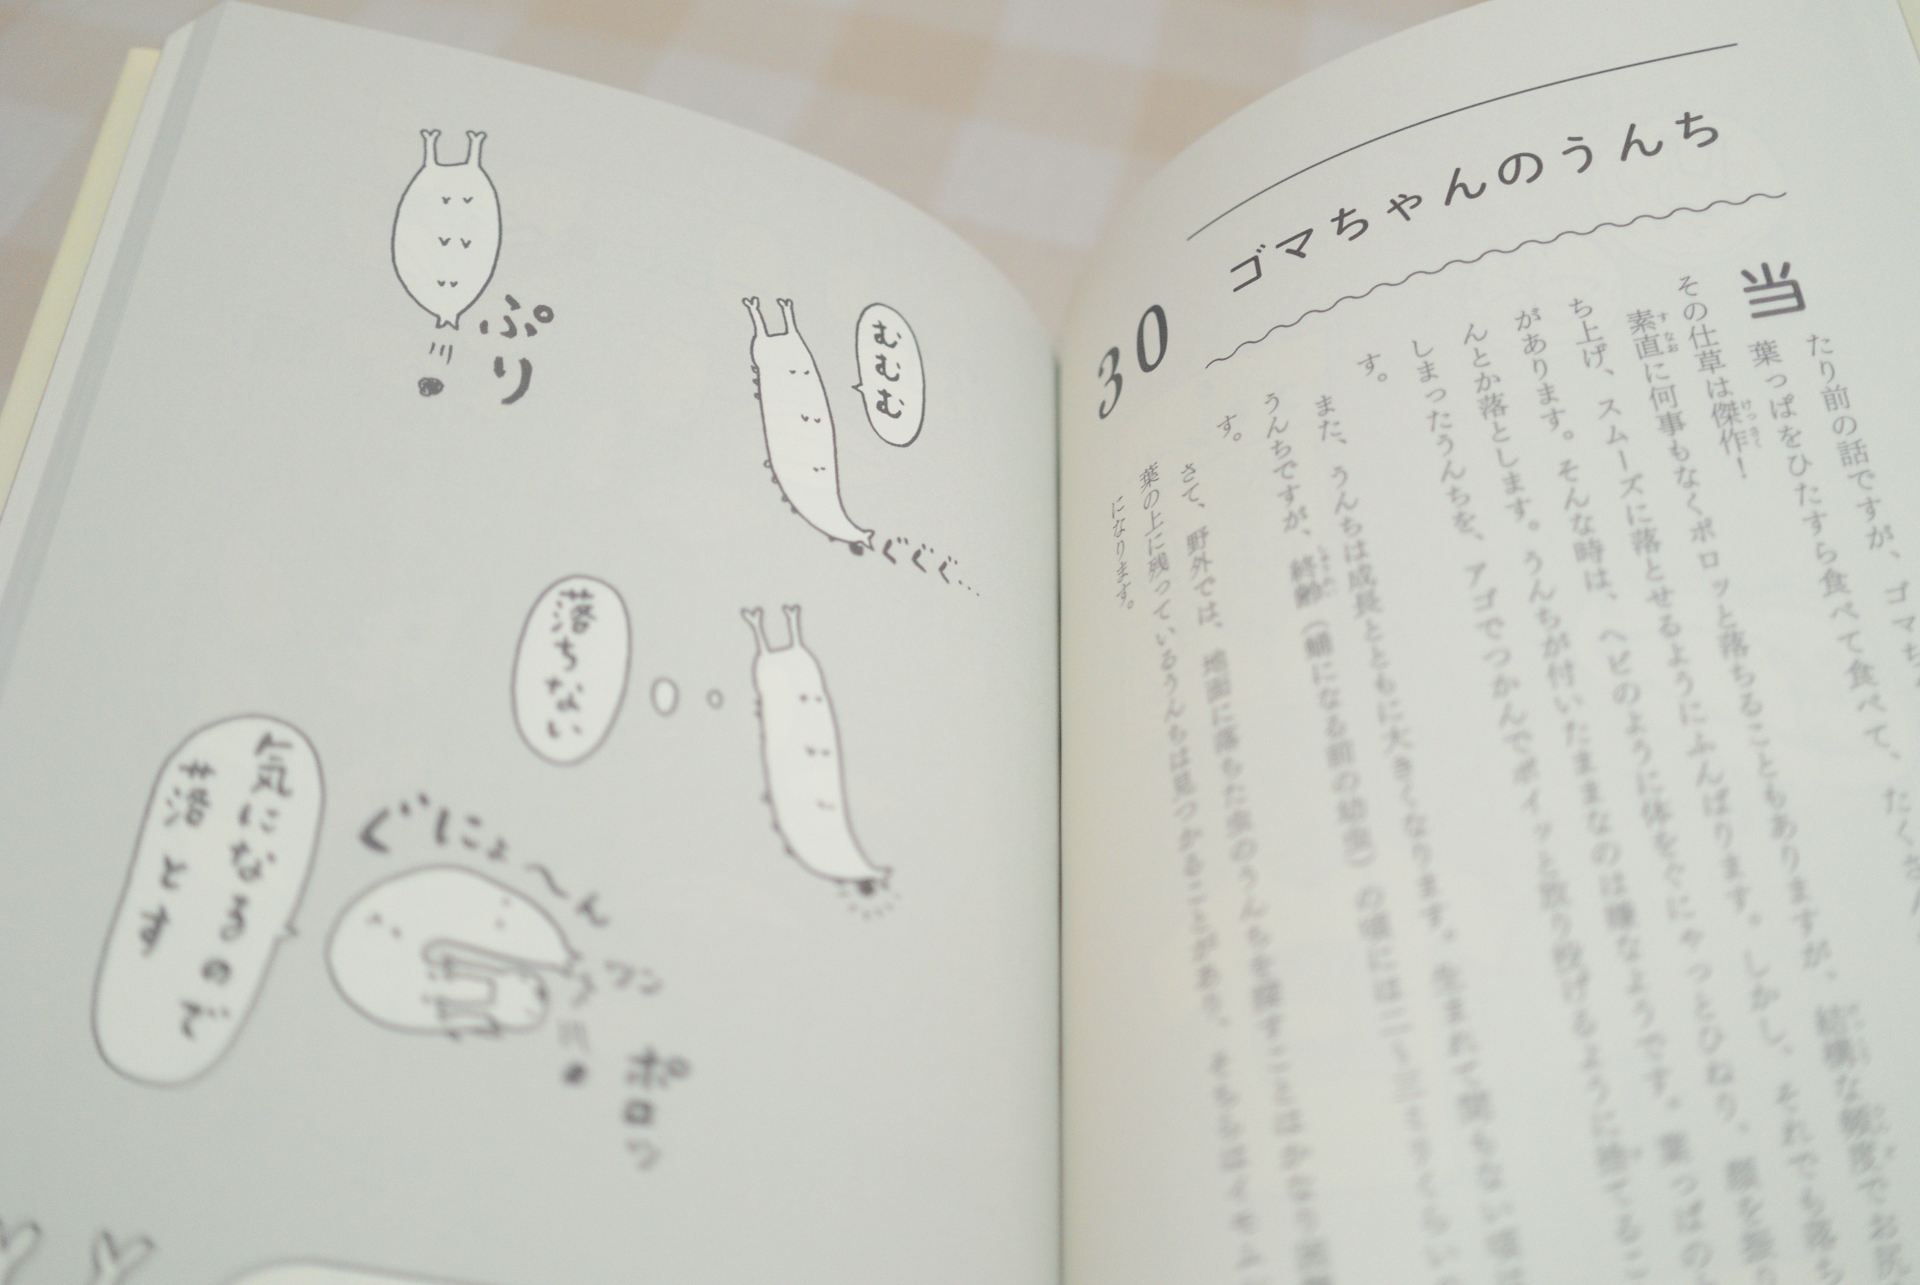 30
ゴマちゃんのうんち
当たり前の話ですが、ゴマち
葉っぱをひたすら食べて食べて、たくさん
その仕草は傑作！
素直に何事もなくポロッと落ちることもありますが、結構な頻度でお尻
ち上げ、スムーズに落とせるようにふんばります。しかし、それでも落ち
があります。そんな時は、ヘビのように体をぐにゃっとひねり、頭を振
んとか落とします。うんちが付いたままなのは嫌なようです。葉っぱの
しまったうんちを、アゴでつかんでポイッと放り投げるように捨てるこ
す。
また、うんちは成長とともに大きくなります。生まれて間もない頃は
うんちですが、終齢（蛹になる前の幼虫）の頃には
す。
さて、野外では、地面に落ちた虫のうんちを探すことはかなり困
葉の上に残っているうんちは見つかることがあり、それらはイモム
になります。
ぷり
むむむ
ぐぐぐ…
落ちない
気になるので
落とす
ぐにょ〜ん
ワン
ポロッ